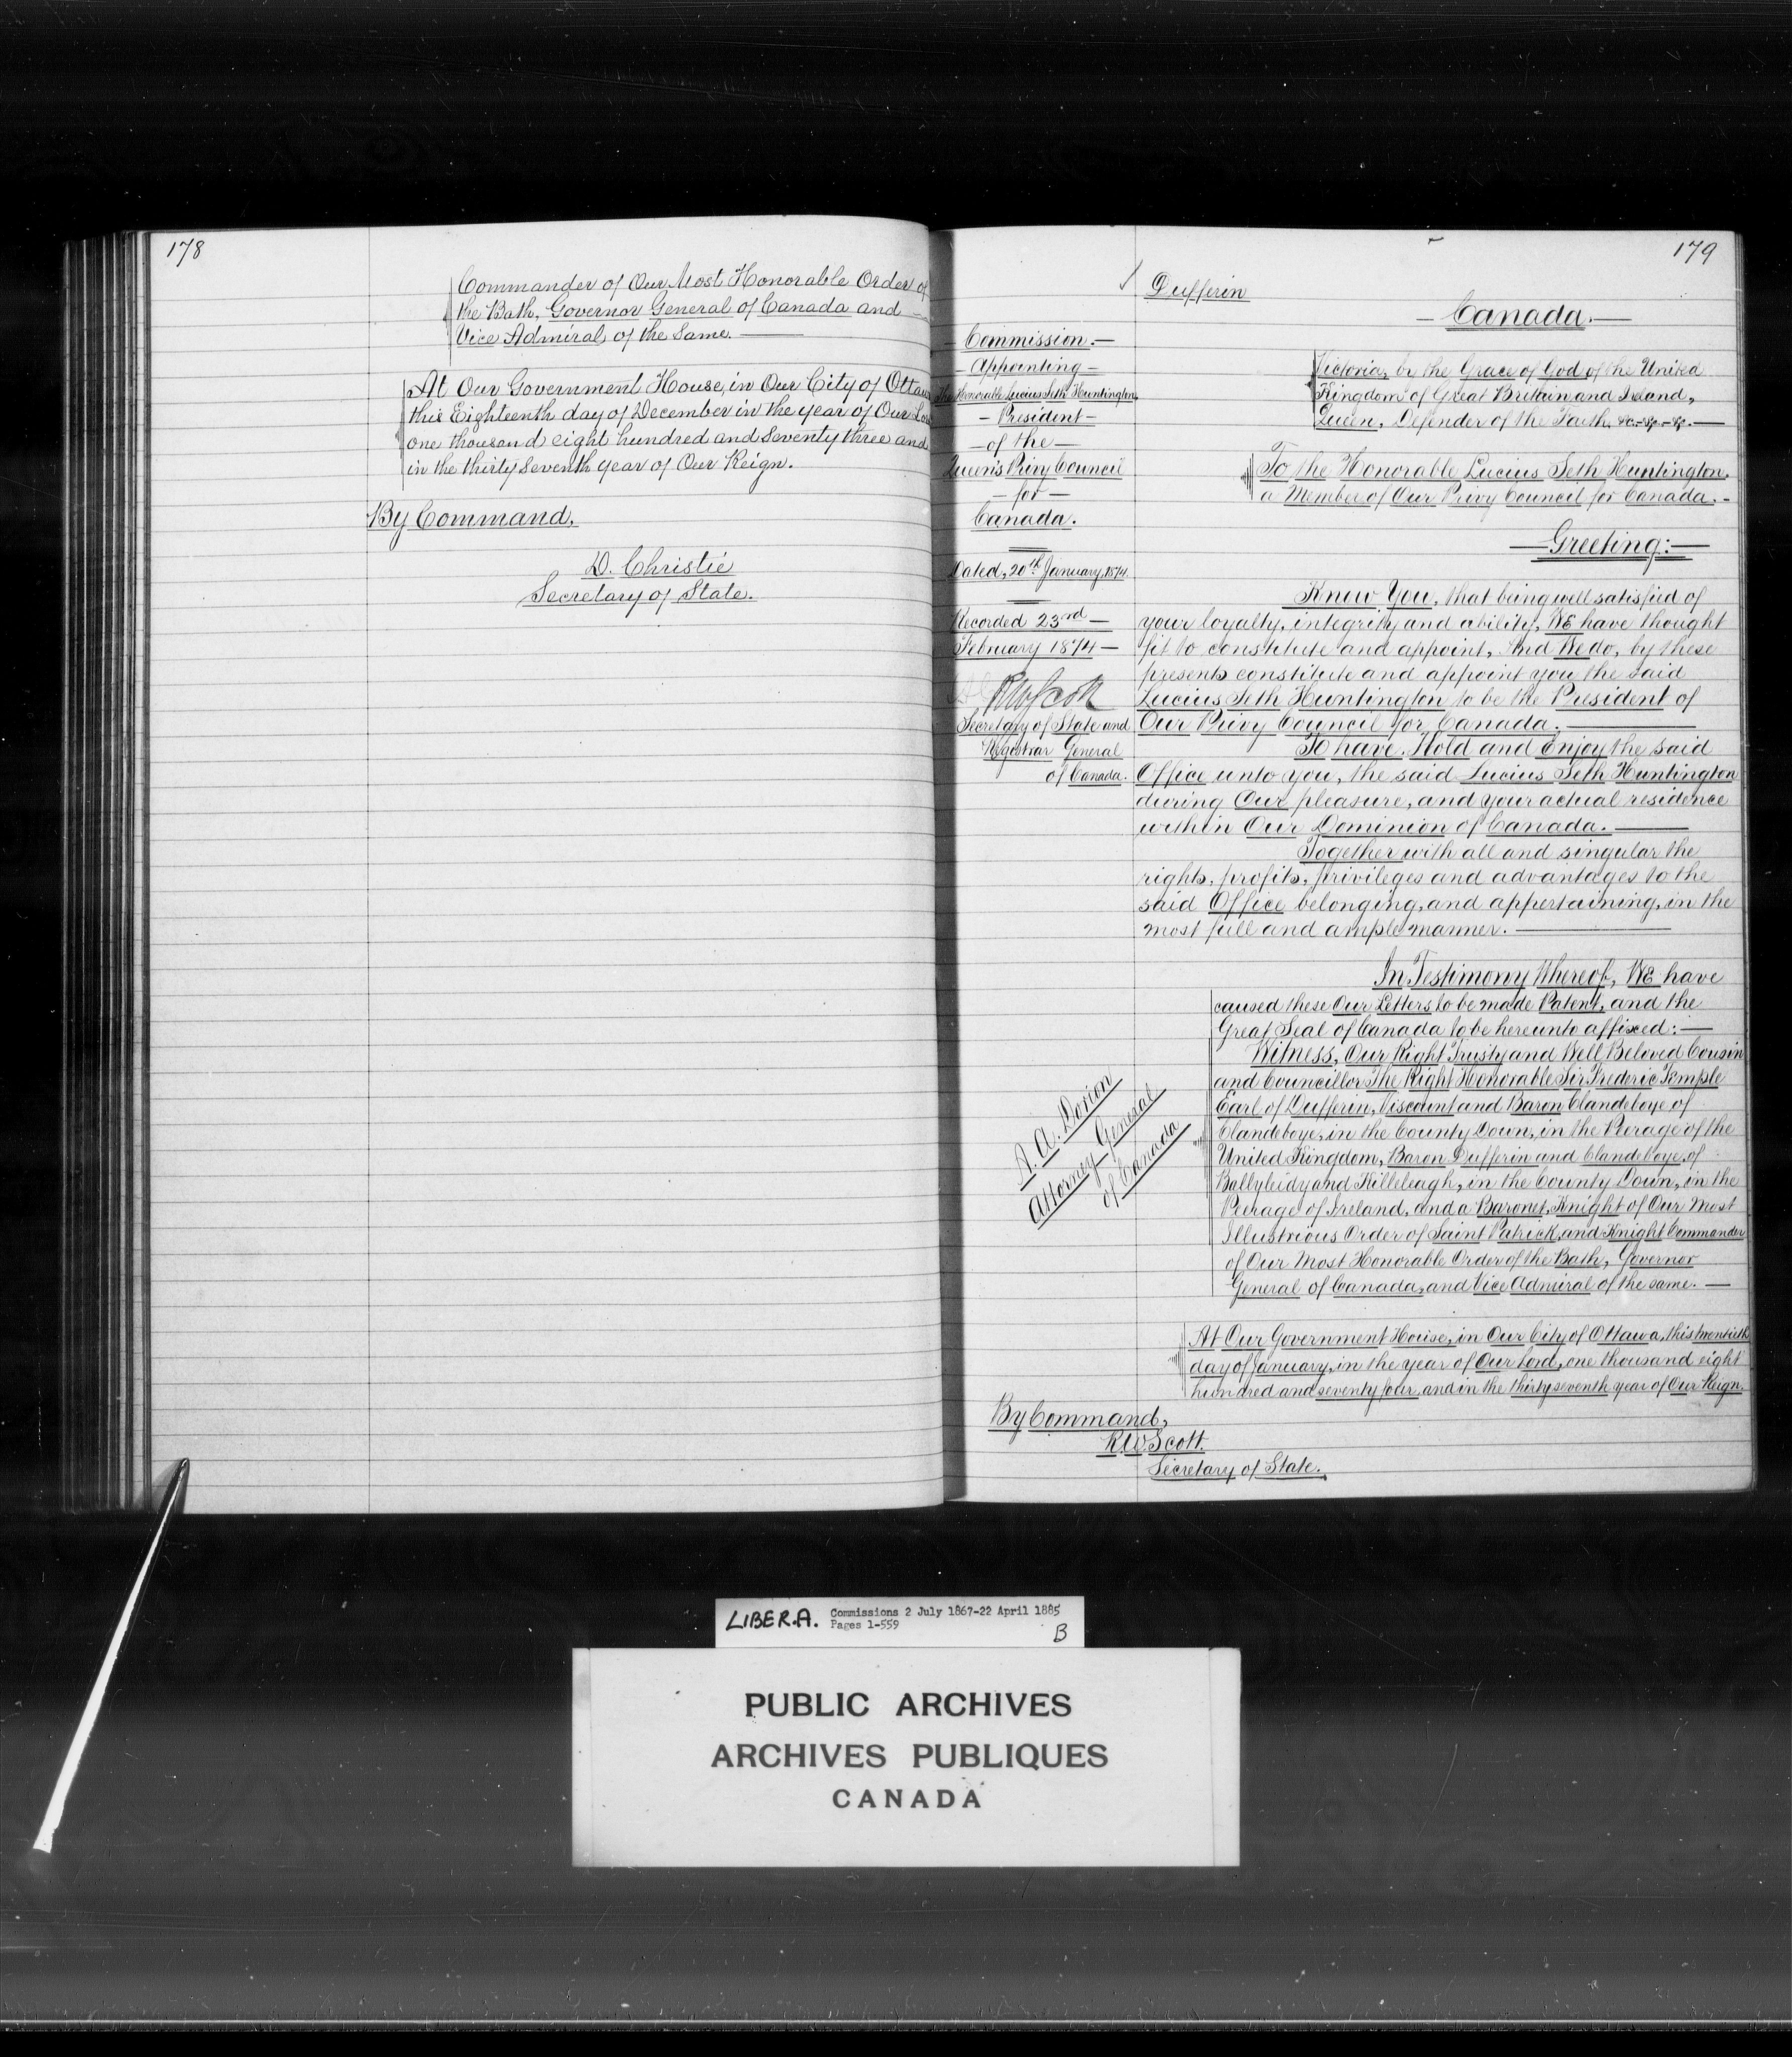 178
Commander of Our Most Honorable Order of
the Bath, Governor General of Canada and —
Vice Admiral of the Same. —
At Our Government House, in Our City of Ottawa
this Eighteenth day of December in the year of Our Lord
one thousand eight hundred and Seventy three and
in the thirty Seventh year of Our Reign.
By Command,
D. Christie
Secretary of State.
179
Dufferin
— Canada. —
Commission. —
— Appointing —
The Honorable Lucius Seth Huntington
— President —
— of the —
Queen's Privy Council
— for —
Canada.
Dated, 20th January, 1874.
Recorded 23rd —
February 1874 —
RW Scott
Secretary of State and
Registrar General
of Canada.
Victoria, by the Grace of God of the United
Kingdom of Great Britain and Ireland,
Queen, Defender of the Faith, &c. &c. &c. —
To the Honorable Lucius Seth Huntington,
a Member of Our Privy Council for Canada. -
— Greeting: —
Know You, that being well satisfied of
your loyalty, integrity and ability, WE have thought
fit to constitute and appoint, And We do, by these
presents constitute and appoint you the said
Lucius Seth Huntington to be the President of
Our Privy Council for Canada. —
To have, Hold and Enjoy the said
Office unto you, the said Lucius Seth Huntington
during Our pleasure, and your actual residence
within Our Dominion of Canada. —
Together with all and singular the
rights, profits, privileges and advantages to the
said Office belonging, and appertaining, in the
most full and ample manner. —
In Testimony Whereof, WE have
caused these Our Letters to be made Patent, and the
Great Seal of Canada to be hereunto affixed: —
Witness, Our Right Trusty and Well Beloved Cousin
and Councillor The Right Honorable Sir Frederic Temple
Earl of Dufferin, Viscount and Baron Clandeboye of
Clandeboye, in the County Down, in the Peerage of the
United Kingdom, Baron Dufferin and Clandeboye, of
Ballyleidy and Killeleagh, in the County Down, in the
Peerage of Ireland, and a Baronet, Knight of Our Most
Illustrious Order of Saint Patrick, and Knight Commander
of Our Most Honorable Order of the Bath, Governor
General of Canada, and Vice Admiral of the same. —
A. A. Dorion
Attorney General
of Canada
At Our Government House, in Our City of Ottawa, this twentieth
day of January, in the year of Our Lord, one thousand eight
hundred and seventy four, and in the thirty seventh year of Our Reign.
By Command,
R.W. Scott.
Secretary of State.
LIBER.A. Commissions 2 July 1867-22 April 1885
Pages 1-559
B
PUBLIC ARCHIVES
ARCHIVES PUBLIQUES
CANADA